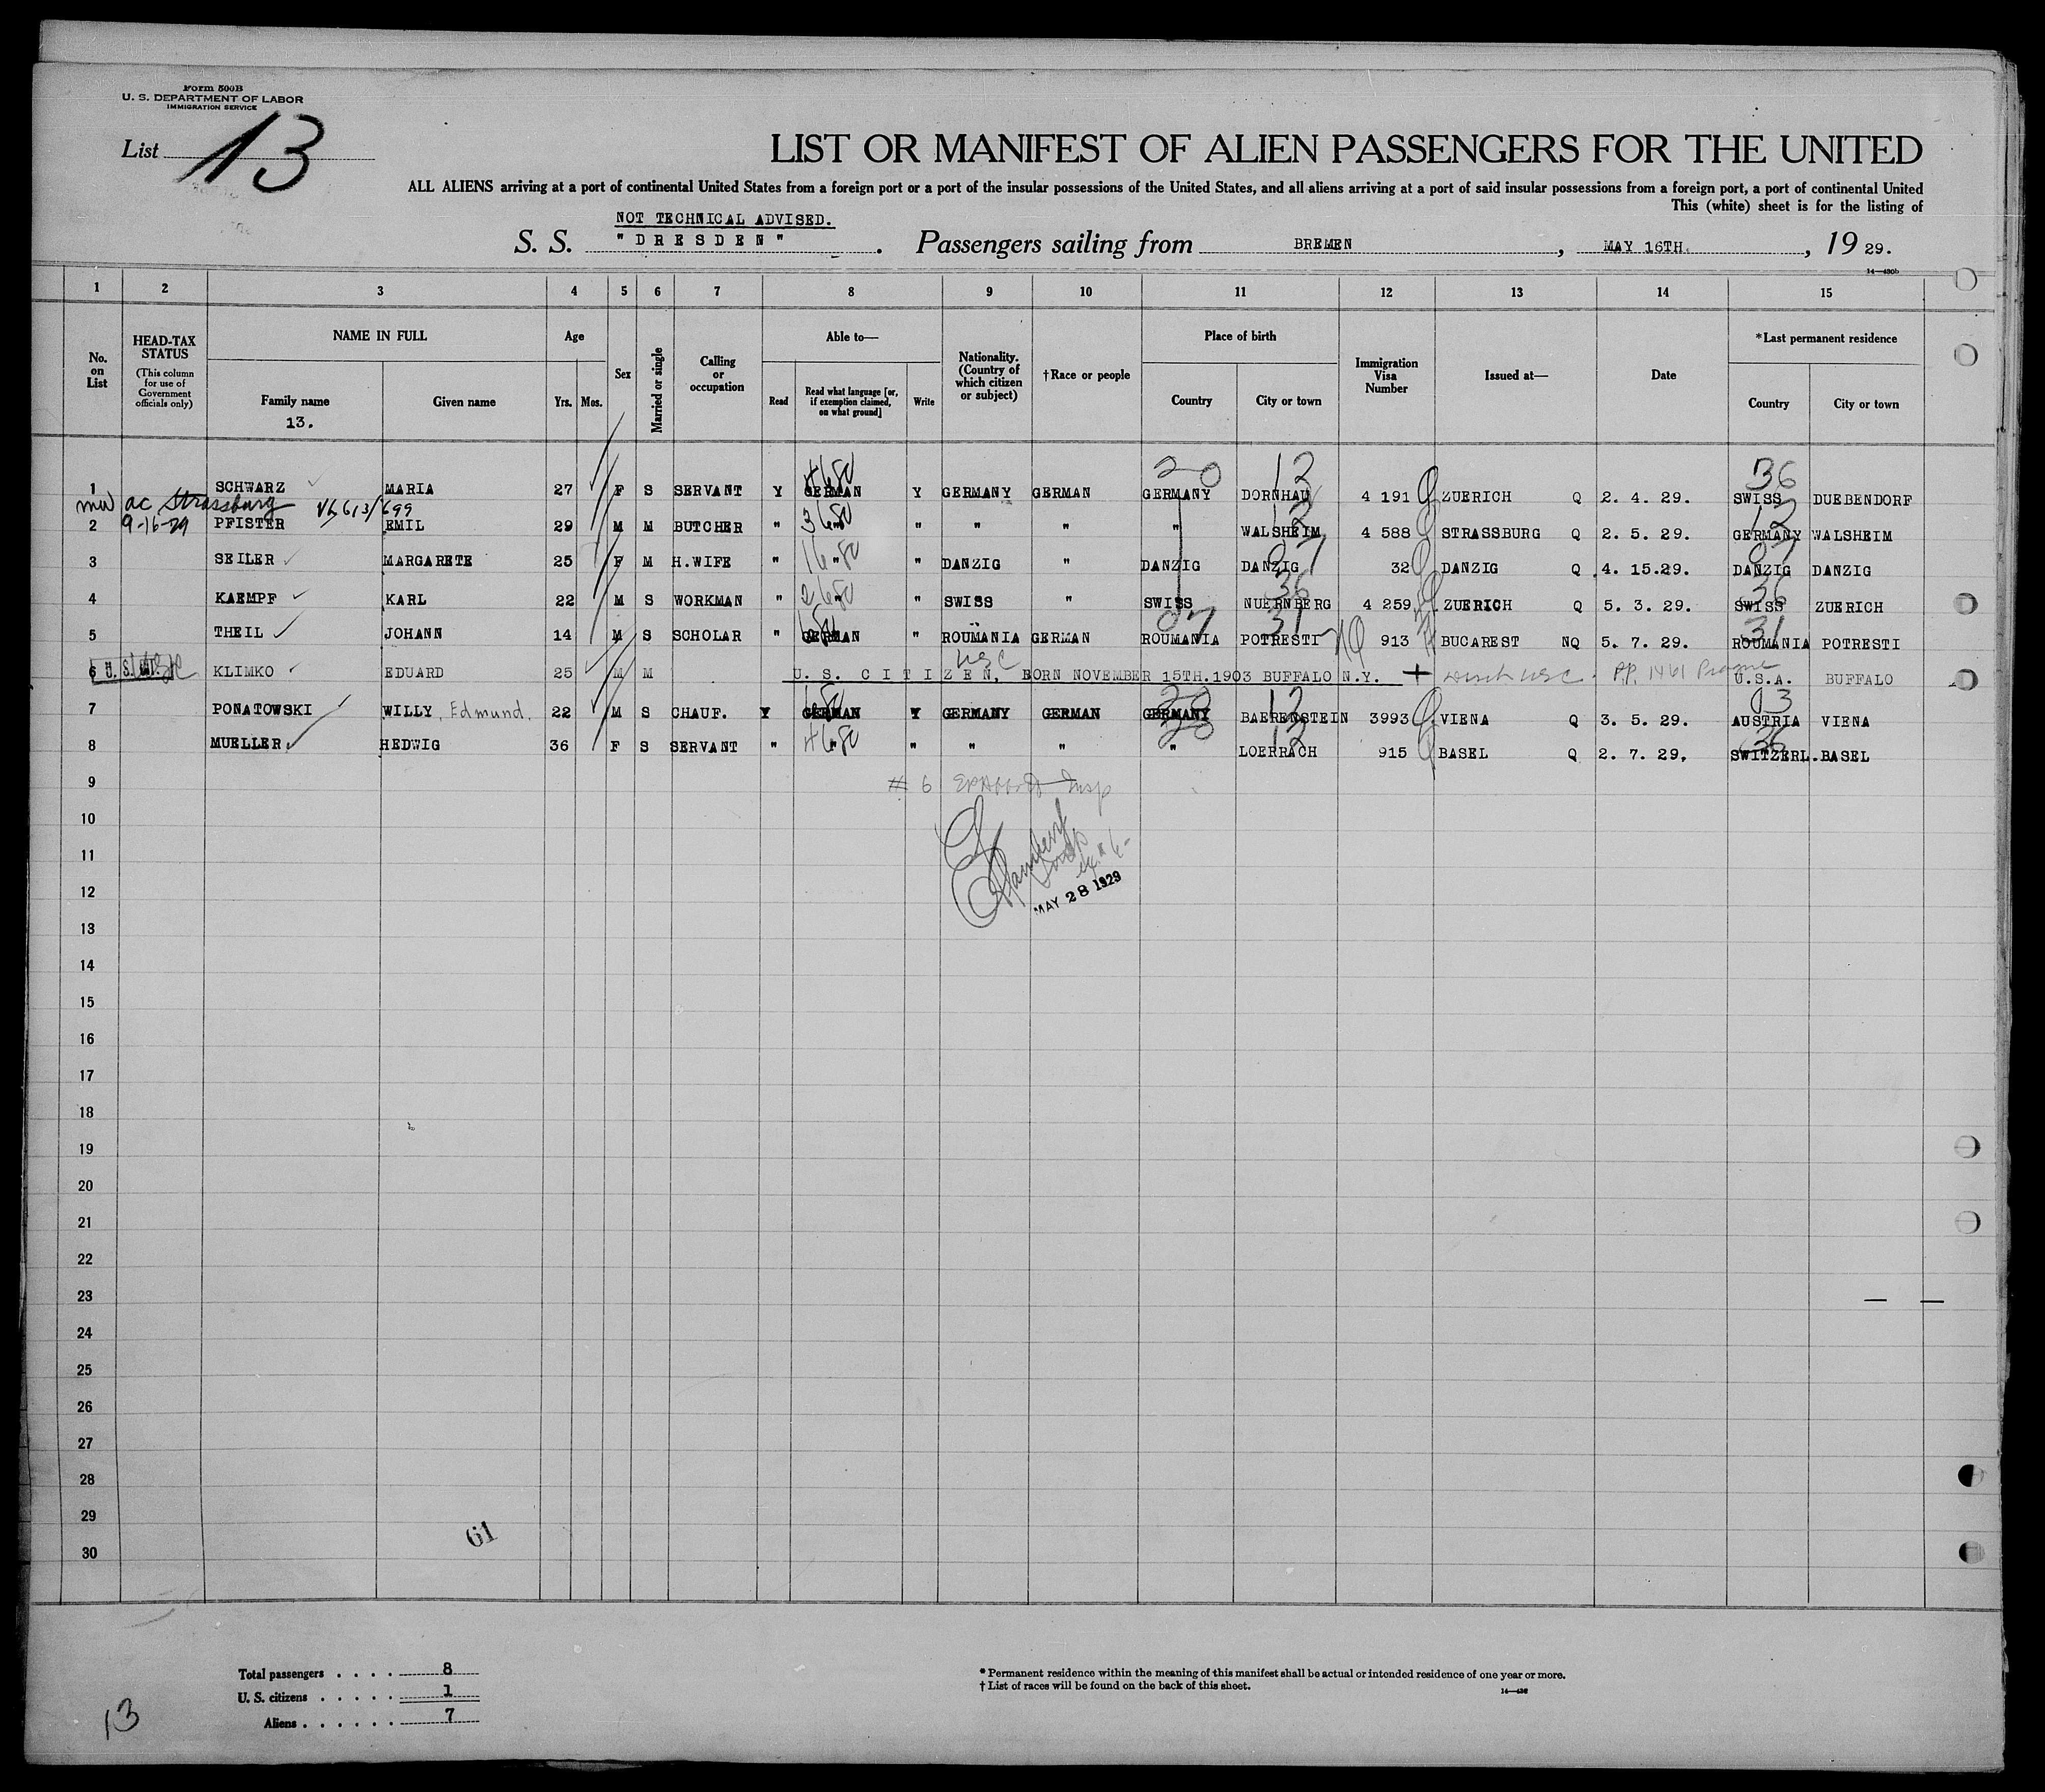 Form 500B
U. S. DEPARTMENT OF LABOR
IMMIGRATION SERVICE
List 13
LIST OR MANIFEST OF ALIEN PASSENGERS FOR THE UNITED
ALL ALIENS arriving at a port of continental United States from a foreign port or a port of the insular possessions of the United States, and all aliens arriving at a port of said insular possessions from a foreign port, a port of continental United
This (white) sheet is for the listing of
NOT TECHNICAL ADVISED.
S. S. "DRESDEN". Passengers sailing from BREMEN, MAY 16TH., 19 29.
14—430b
1 2 3 4 5 6 7 8 9 10 11 12 13 14 15
No. on List
HEAD-TAX STATUS (This column for use of Government officials only)
NAME IN FULL
Family name
13.
Given name
Age
Yrs. Mos.
Sex
Married or single
Calling or occupation
Able to—
Read
Read what language [or, if exemption claimed, on what ground]
Write
Nationality. (Country of which citizen or subject)
†Race or people
Place of birth
Country
City or town
Immigration Visa Number
Issued at—
Date
*Last permanent residence
Country
City or town
20 12 36
1 SCHWARZ MARIA 27 F S SERVANT Y GERMAN Y GERMANY GERMAN GERMANY DORNHAU 4 191 ZUERICH Q 2. 4. 29. SWISS DUEBENDORF
ac Strassburg 613/699
12 12
2 9-16-29 PFISTER EMIL 29 M M BUTCHER " " " " " " WALSHEIM 4 588 STRASSBURG Q 2. 5. 29. GERMANY WALSHEIM
07 07
3 SEILER MARGARETE 25 F M H.WIFE " " " DANZIG " DANZIG DANZIG 32 DANZIG Q 4. 15.29. DANZIG DANZIG
36 36
4 KAEMPF KARL 22 M S WORKMAN " " " SWISS " SWISS NUERNBERG 4 259 ZUERICH Q 5. 3. 29. SWISS ZUERICH
07 31 31
5 THEIL JOHANN 14 M S SCHOLAR " GERMAN " ROUMANIA GERMAN ROUMANIA POTRESTI NQ 913 BUCAREST NQ 5. 7. 29. ROUMANIA POTRESTI
USC
6 KLIMKO EDUARD 25 M M U. S. CITIZEN, BORN NOVEMBER 15TH.1903 BUFFALO N.Y. + USC P.P. 1461 Prague U.S.A. BUFFALO
20 12 03
7 PONATOWSKI WILLY Edmund. 22 M S CHAUF. Y GERMAN Y GERMANY GERMAN GERMANY BAERENSTEIN 3993 VIENA Q 3. 5. 29. AUSTRIA VIENA
20 12 36
8 MUELLER HEDWIG 36 F S SERVANT " " " " " " LOERRACH 915 BASEL Q 2. 7. 29. SWITZERL. BASEL
9 # 6 Insp
10
11
12
MAY 28 1929
13
14
15
16
17
18
19
20
21
22
23
24
25
26
27
28
29
61
30
Total passengers . . . . 8
U. S. citizens . . . . . 1
Aliens . . . . . . 7
13
* Permanent residence within the meaning of this manifest shall be actual or intended residence of one year or more.
† List of races will be found on the back of this sheet.